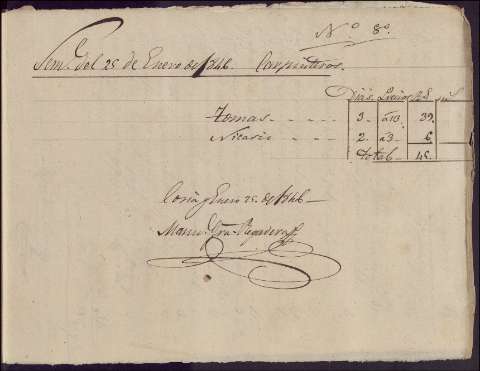 Nº 8º
Semª del 25 de Enero de 1846. Carpinteros.
Dias. Precios Rs.
tomas - - - - 3 - a 13. 39.
Nicasio - - - - 2. a 3 - 6
total - 45.
Coria y Enero 25. de 1846 -
Manu. Gra.